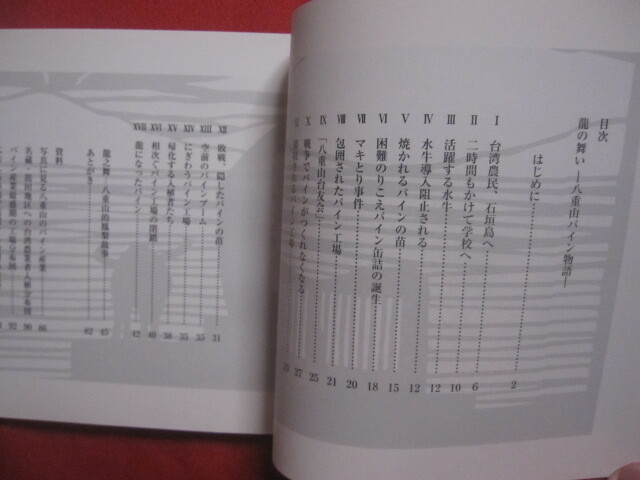 目次
龍の舞い ―八重山パイン物語―
はじめに……2
Ⅰ 台湾農民、石垣島へ
Ⅱ 二時間もかけて学校へ……6
Ⅲ 活躍する水牛……10
Ⅳ 水牛導入阻止される……12
Ⅴ 焼かれるパインの苗……12
Ⅵ 困難のりこえパイン缶詰の誕生……15
Ⅶ マキとり事件……18
Ⅷ 包囲されたパイン工場……20
Ⅸ 「八重山台友会」……21
Ⅹ 戦争でパインがつくれなくなる……25
27
Ⅻ 敗戦、隠したパインの苗……31
XIII 空前のパインブーム……35
XIV にぎわうパイン工場……35
XV 帰化する入植者たち……38
XVI 相次ぐパイン工場の閉鎖……40
XVII 龍になったパイン……42
龍之舞 八重山的鳳梨故事……45
あとがき……82
資料
写真に見る八重山のパイン産業……86
90
92